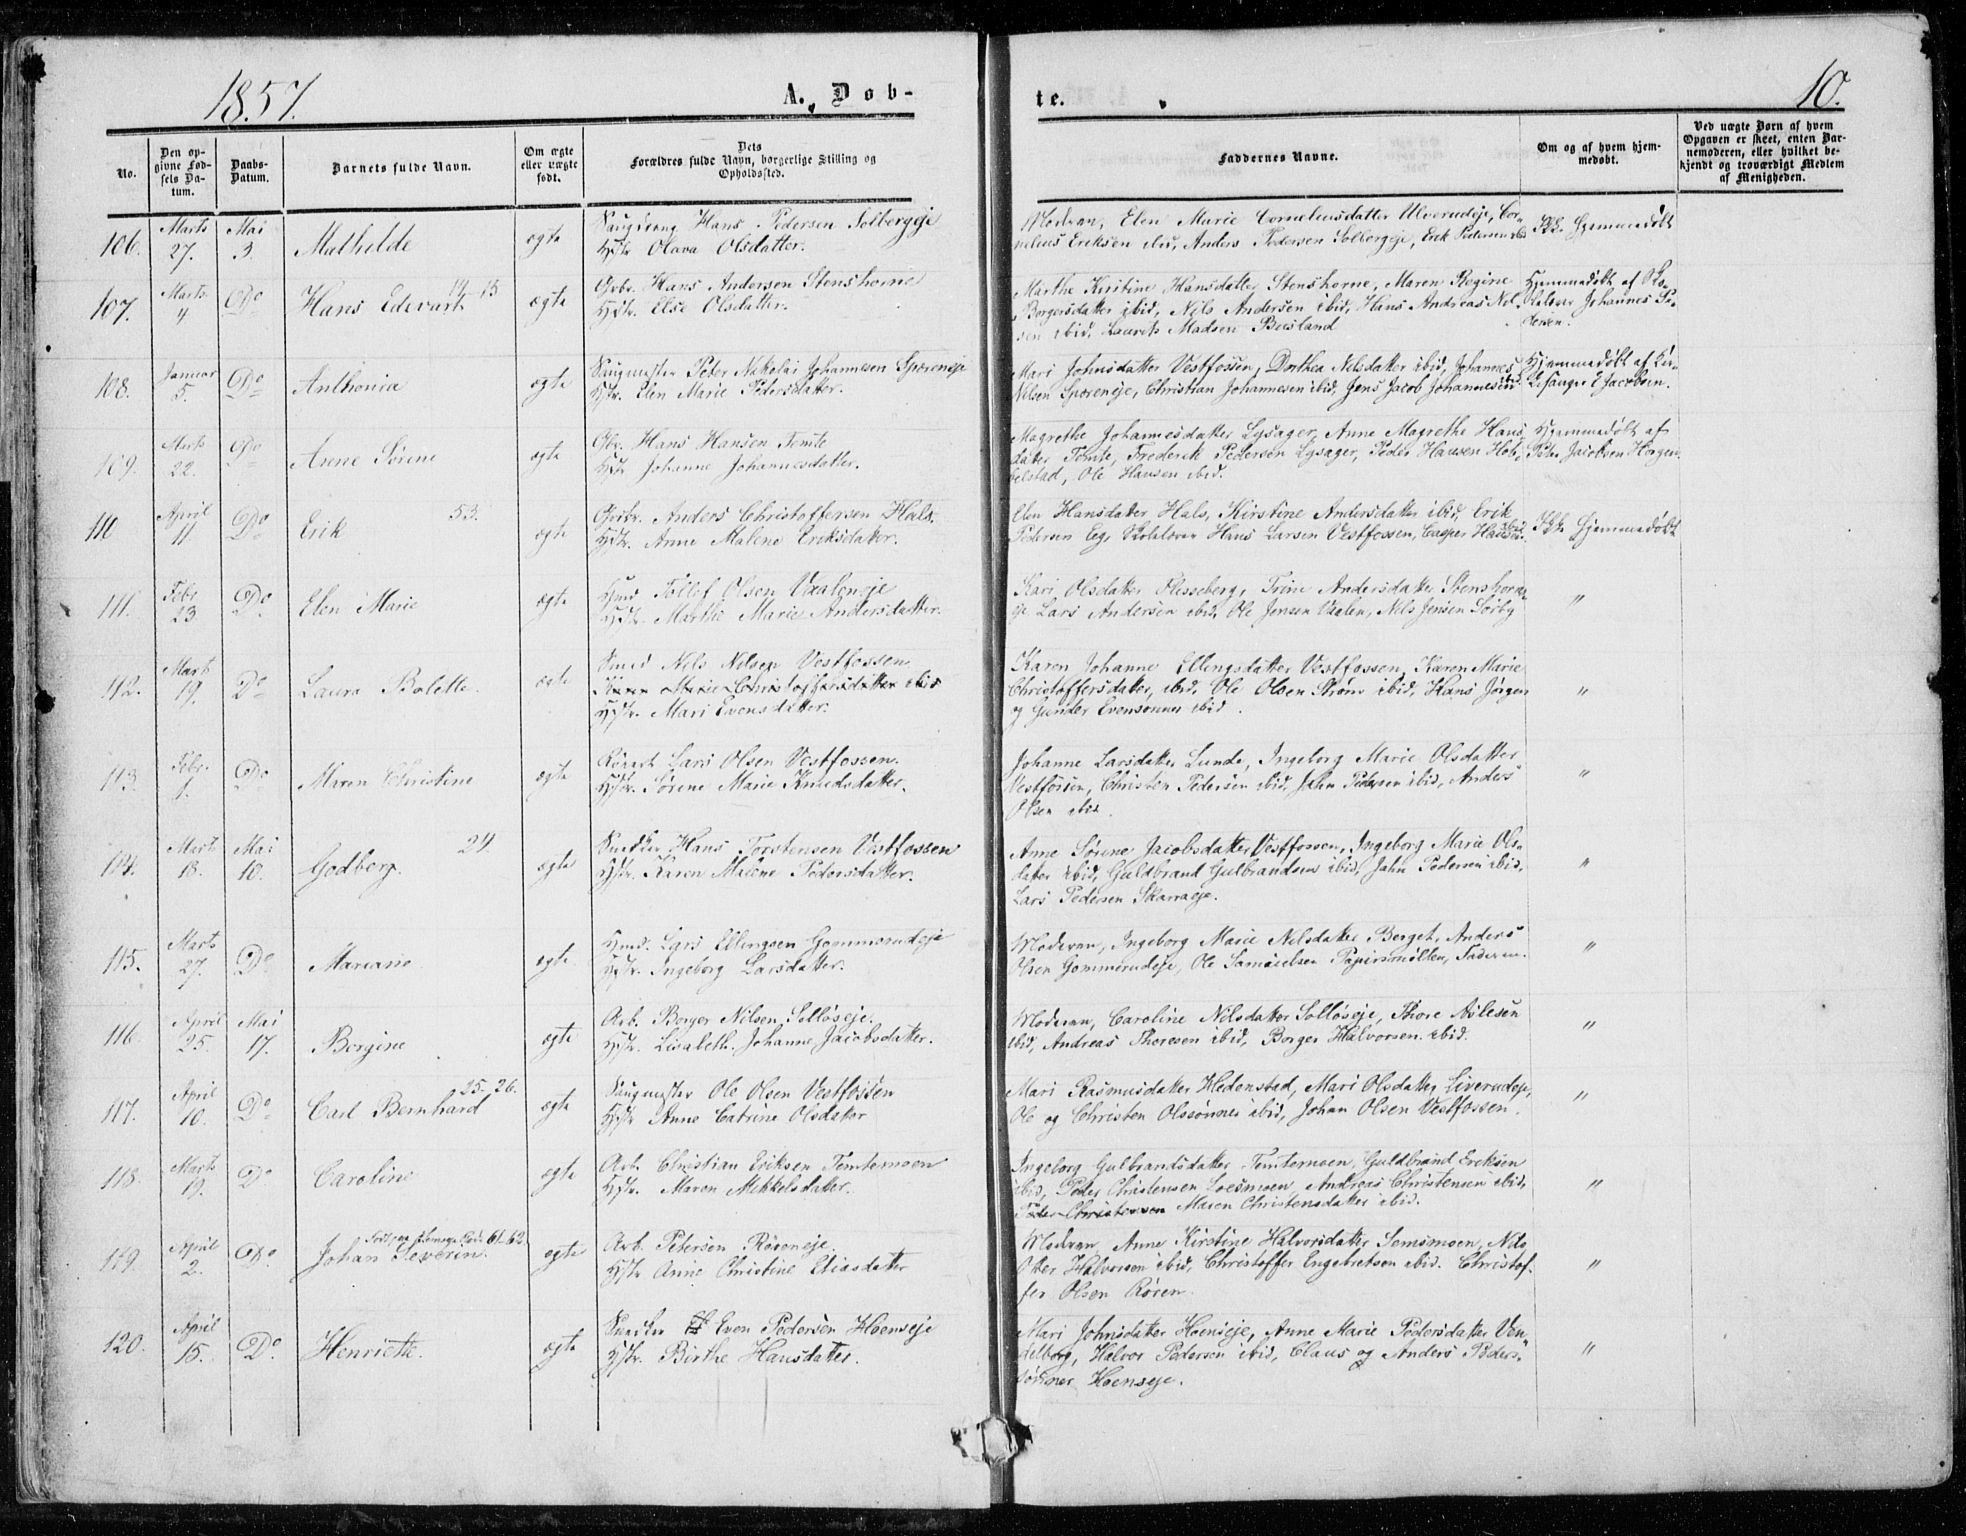 1857.
A. Døb-
te.
10.
No.
Den opgivne Fødsels Datum.
Daabs-Datum.
Barnets fulde Navn.
Om ægte eller uægte født.
Dets Forældres fulde Navn, borgerlige Stilling og Opholdssted.
Faddernes Navne.
Om og af hvem hjemmedøbt.
Ved uægte Børn af hvem Opgaven er skeet, enten Barnemoderen, eller hvilket bekjendt og troværdigt Medlem af Menigheden.
106. Marts 27. Mai 3. Mathilde ægte
Hans Pedersen Solbergeje
Hstr. Olava Olsdatter.
Moderen, Elen Marie Corneliusdatter Ulverudeje, Cor-
nelius Eriksen ibid, Anders Pedersen Solbergeje, Erik Pedersen ibid
Ikke Hjemmedøbt
107. Marts 4 Do Hans Edevart 12 13 ægte
Gbr. Hans Andersen Stenshorne
Hstr. Else Olsdatter.
Marthe Kirstine Hansdatter Stenshorne, Maren Regine
Borgersdatter ibid, Nils Andersen ibid, Hans Andreas Nil-
sen ibid, Laurits Madsen Busland
Hjemmedøbt af Sko-
lelærer Johannes Pe-
dersen.
108. Januar 5. Do Anthonia ægte
Saugmester Peter Nikolai Johannesen Sporeneje
Hstr. Elen Marie Pedersdatter.
Mari Johnsdatter Vestfossen, Dorthea Nelsdatter ibid, Johannes
Nilsen Sporeneje, Christian Johannesen ibid, Jens Jacob Johannesen ibid.
Hjemmedøbt af Kir-
kesanger E Jacobsen.
109. Marts 22. Do Anne Sørine ægte
Gbr. Hans Hansen Temte
Hstr Johanne Johannesdatter.
Magrethe Johannesdatter Lysager, Anne Magrethe Hans
datter Temte, Frederik Pedersen Lysager, Peder Hansen Hob-
belstad, Ole Hansen ibid.
Hjemmedøbt af
Peter Jacobsen Horgen.
110 April 11. Do Erik 53. ægte
Anders Christoffersen Hals.
Hstr. Anne Malene Eriksdatter.
Elen Hansdatter Hals, Kirstine Andersdatter ibid, Erik
Pedersen Eeg, Skolelærer Hans Larsen Vestfossen, Casper Hansen ibid.
Ikke Hjemmedøbt
111. Febr 23 Do Elen Marie ægte
Hmd Tollef Olsen Vxaleneje
Hstr. Marthe Marie Andersdatter.
Kari Olsdatter Flesseberg, Trine Andersdatter Stenshorn-
eje Lars Andersen ibid. Ole Jensen Vxalen, Nils Jensen Sørby
"
112. Marts 19. Do Laura Bolette. ægte
Smed Nils Nilsen Vestfossen
Karen Marie Christoffersdatter ibid
Hstr. Mari Evensdatter.
Karen Johanne Ellingsdatter Vestfossen, Karen Marie
Christoffersdatter, ibid. Ole Olsen Strøm ibid, Hans Jørgen
og Gunder Evensønner ibid.
"
113. Febr. 1. Do Maren Christine ægte
Lars Olsen Vestfossen.
Hstr. Sørene Marie Knudsdatter.
Johanne Larsdatter Lunde, Ingeborg Marie Olsdatter
Vestfossen, Christen Pedersen ibid, Jahn Pedersen ibid, Anders
Olsen ibid.
"
114. Marts 18. Mai 10. Godborg. 24. ægte
Snedker Hans Torstensen Vestfossen
Hstr. Karen Malene Pedersdatter.
Anne Sørene Jacobsdatter Vestfossen, Ingeborg Marie Ols-
datter ibid, Guldbrand Gulbrandsen ibid, Jahn Pedersen ibid,
Lars Pedersen Skarraeje.
"
115. Marts 27. Do Mariane ægte
Hmd. Lars Ellingsen Gommerudeje
Hstr. Ingeborg Larsdatter.
Moderen, Ingeborg Marie Nelsdatter Berget, Anders
Olsen Gommerudeje, Ole Samuelsen Papirsmøllen, Faderen.
"
116. April 25. Mai 17. Borgine ægte
Arb. Borger Nilsen Solløseje.
Hstr. Lisabeth Johanne Jacobsdatter.
Moderen, Caroline Nilsdatter Solløseje, Thore Aslesen
ibid, Andreas Thoresen ibid, Borger Halvorsen ibid.
"
117. April 10. Do Carl Bernhard 25-26. ægte
Saugmester Ole Olsen Vestfossen
Hstr Anne Catrine Olsdatter
Mari Rasmusdatter Hedenstad, Mari Olsdatter Liverudeje,
Ole og Christen Olssønner ibid, Johan Olsen Vestfossen.
"
118. Marts 19. Do Caroline ægte
Arb. Christian Eriksen Temtemoen
Hstr. Maren Mikkelsdatter.
Ingeborg Gulbrandsdatter Temtemoen, Guldbrand Eriksen
ibid, Peder Christensen Loesmoen Andreas Christensen ibid,
Peder Christensen Maren Christensdatter ibid.
"
119. April 2. Do Johan Severin. 61-62. ægte
Arb. Petersen Røreneje.
Hstr Anne Christine Eliasdatter
Moderen Anne Kirstine Halvorsdatter Semsmoen, Nils
Peter Halvorsen ibid, Christoffer Engebretsen ibid. Christof-
fer Olsen Røren.
"
120. April 15. Do. Henriette. ægte
Snedker Even Pedersen Hoenseje
Hstr. Birthe Hansdatter.
Mari Johnsdatter Hoenseje, Anne Marie Pedersdatter Ven-
delborg, Halvor Pedersen ibid, Claus og Anders Peders-
sønner Hoenseje.
"